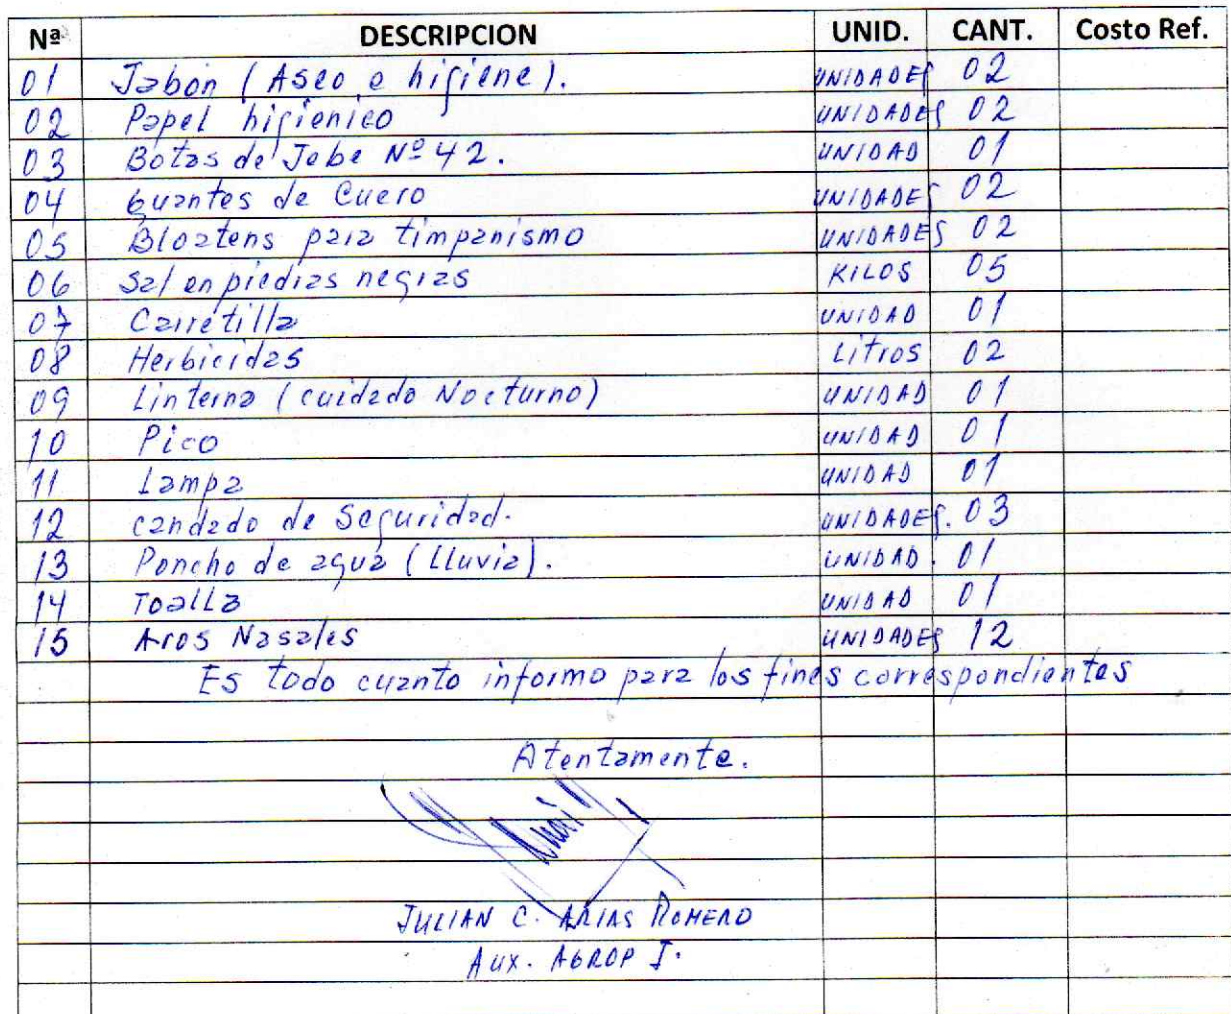 Nª DESCRIPCION UNID. CANT. Costo Ref.
01 Jabón (Aseo e higiene). UNIDADES 02
02 Papel higienico UNIDADES 02
03 Botas de Jebe Nº 42. UNIDAD 01
04 Guantes de Cuero UNIDADES 02
05 Bloatens para timpanismo UNIDADES 02
06 Sal en piedras negras KILOS 05
07 Carretilla UNIDAD 01
08 Herbicidas Litros 02
09 Linterna (cuidado Nocturno) UNIDAD 01
10 Pico UNIDAD 01
11 Lampa UNIDAD 01
12 candado de Seguridad. UNIDADES. 03
13 Poncho de agua (Lluvia). UNIDAD. 01
14 Toalla UNIDAD 01
15 Aros Nasales UNIDADES 12
Es todo cuanto informo para los fines correspondientes
Atentamente.
JULIAN C. ARIAS ROMERO
AUX. AGROP I.